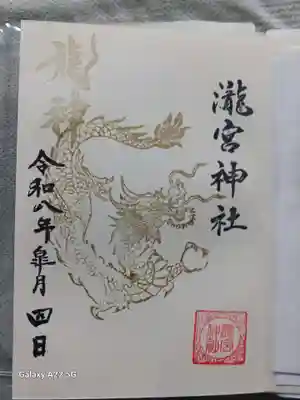 瀧宮神社
龍神
令和八年皐月四日
Galaxy A22 5G